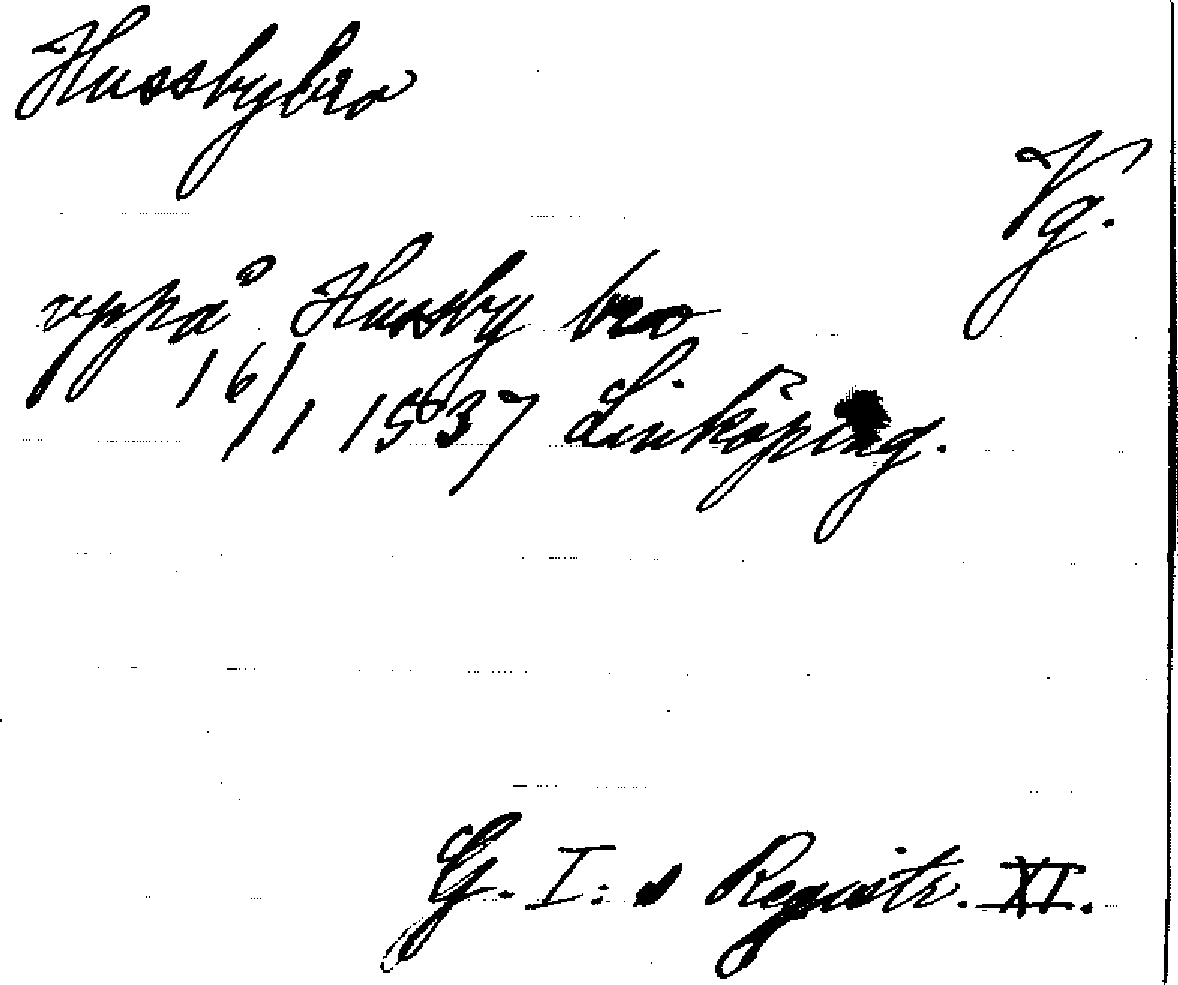 Hussbybro
Vg.
vppå Hussby bro
16/1 1537 Linköping.
G. I:s Registr. XI.